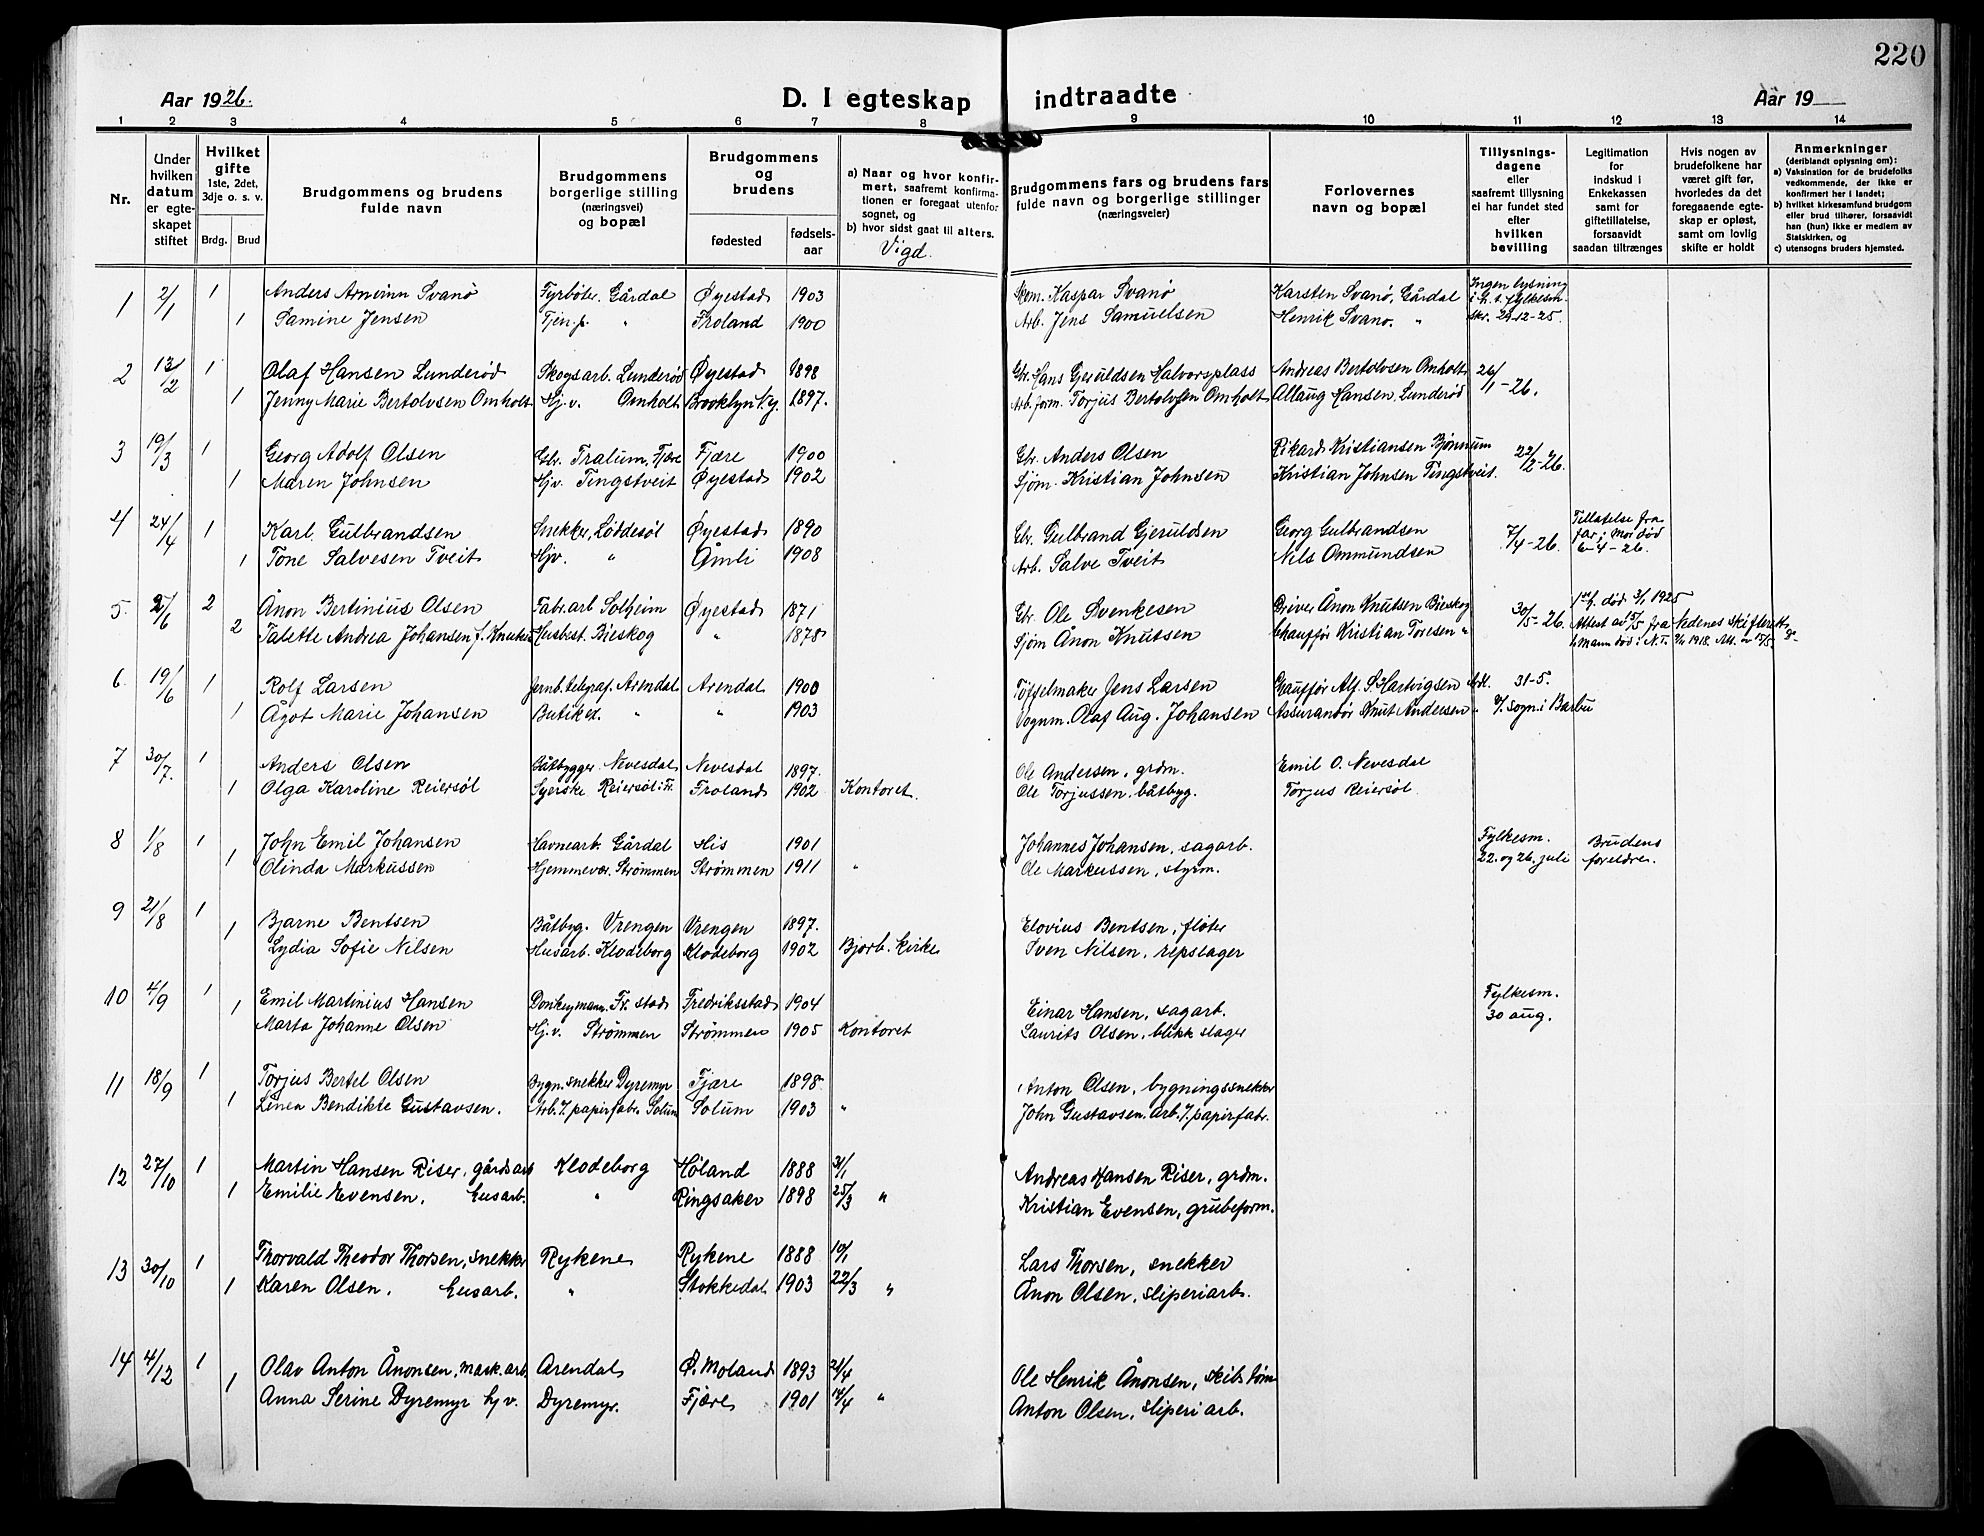 220
Aar 1926.
D. I egteskap indtraadte
Aar 19
1 2 3 4 5 6 7 8 9 10 11 12 13 14
Nr.
Under hvilken datum er egteskapet stiftet
Hvilket gifte 1ste, 2det, 3dje o. s. v.
Brdg. Brud
Brudgommens og brudens fulde navn
Brudgommens borgerlige stilling (næringsvei) og bopæl
Brudgommens og brudens
fødested
fødselsaar
a) Naar og hvor konfirmert, saafremt konfirmationen er foregaat utenfor sognet, og
b) hvor sidst gaat til alters.
Vigd.
Brudgommens fars og brudens fars fulde navn og borgerlige stillinger (næringsveier)
Forlovernes navn og bopæl
Tillysningsdagene eller saafremt tillysning ei har fundet sted efter hvilken bevilling
Legitimation for indskud i Enkekassen samt for giftetillatelse, forsaavidt saadan tiltrænges
Hvis nogen av brudefolkene har været gift før, hvorledes da det foregaaende egteskap er opløst, samt om lovlig skifte er holdt
Anmerkninger (deriblandt oplysning om):
a) Vaksination for de brudefolks vedkommende, der ikke er konfirmert her i landet;
b) hvilket kirkesamfund brudgom eller brud tilhører, forsaavidt han (hun) ikke er medlem av Statskirken, og
c) utensogns bruders hjemsted.
1 2/1 1 Anders Arneinn Svanø Fyrbøter, Gårdal Øyestad 1903 Skom. Kaspar Svanø Karsten Svanø, Gårdal Ingen lysning
1 Samine Jensen Tjen.p. " Froland 1900 Arb. Jens Samuelsen Henrik Svanø. " skr. 29-12-25.
2 13/2 1 Olaf Hansen Lunderød Skogsarb. Lunderød Øyestad 1898 Gbr. Hans Gjeruldsen Halvorsplass Andreas Bertolvsen Omholt 26/1-26.
1 Jenny Marie Bertolvsen Omholt Hj.v. Omholt Brooklyn N.y. 1897. Arb.form. Torjus Bertolvsen Omholt Ollaug Hansen Lunderød
3 19/3 1 Georg Adolf Olsen Gbr. Tralum, Fjære Fjære 1900 Gbr. Anders Olsen Rikard Kristiansen Bjønnum 22/2-26.
1 Maren Johnsen Hjv. Tingstveit Øyestad 1902 Sjøm. Kristian Johnsen Kristian Johnsen Tingstveit.
4 24/4 1 Karl Gulbrandsen Snekker, Løddesøl Øyestad 1890 Gbr. Gulbrand Gjeruldsen Georg Gulbrandsen 7/4-26. Tillatelse fra far; mor død 6-4-26.
1 Tone Salvesen Tveit Hjv. " Åmli 1908 Arb. Salve Tveit Nils Ommundsen
5. 5/6 2 Ånon Bertinius Olsen Fabr.arb Solheim Øyestad 1871 Gbr. Ole Svenkesen Driver Ånon Knutsen Bieskog 30/5-26. død 3/1 1925
2 Talette Andrea Johansen f. Knutsen Husbest. Bieskog " 1878 Sjøm Ånon Knutsen Chauffør Kristian Toresen " Attest av 15/5 fra Nedenes skifterett
Mann død i 1918.
6 19/6 1 Rolf Larsen Jernb.telegraf. Arendal Arendal 1900 Tøffelmaker Jens Larsen Chauffør Alf. S. Hartvigsen 31-5.
1 Ågot Marie Johansen Butikex. " " 1903 Vognm. Olaf Aug. Johansen Assurandør Knut Andersen " sogn i Barbu
7 30/7. 1 Anders Olsen Båtbygger Nevesdal Nevesdal 1897. Ole Andersen, grdm. Emil O. Nevesdal
1 Olga Karoline Reiersøl Syerske Reiersøl i Fr. Froland 1902 Kontoret. Ole Torjussen. båtbyg. Torjus Reiersøl
8 1/8 1 John Emil Johansen Havnearb. Gårdal His 1901 Johannes Johansen, sagarb. Fylkesm. 22. og 26. juli Brudens foreldre.
1 Olinda Markussen Hjemmevær. Strømmen Strømmen 1911 " Ole Markussen, styrm.
9 21/8 1 Bjarne Bentsen Båtbyg. Vrengen Vrengen 1897. Elovius Bentsen, fløter
1 Lydia Sofie Nilsen Husarb. Klodeborg Klodeborg 1902 Bjorb. kirke Sven Nilsen, repslager
10 4/9 1 Emil Martinius Hansen Donkeymann. Fr. stad Fredriksstad 1904 Einar Hansen, sagarb. Fylkesm. 30 aug.
1 Marta Johanne Olsen Hj.v. Strømmen Strømmen 1905 Kontoret Laurits Olsen, blikkslager
11 18/9 1 Torjus Bertel Olsen Bygn.snekker Dyremyr Fjære 1898 Anton Olsen, bygningssnekker
1 Linea Bendikte Gustavsen. Arb. v/papirfabr. Solum Solum 1903 " John Gustavsen. arb. v/papirfabr.
12 27/10 1 Martin Hansen Riser, gårdsarb Klodeborg Høland 1888 31/1 Andreas Hansen Riser, grdm.
1 Emilie Evensen, husarb. " Ringsaker 1898 25/3 " Kristian Evensen, grubeform.
13 30/10 1 Thorvald Theodor Thorsen, snekker Rykene Rykene 1888 10/1 Lars Thorsen, snekker
1 Karen Olsen, husarb. " Stokkedal 1903 22/3 " Ånon Olsen, sliperiarb.
14 4/12 1 Olav Anton Ånonsen, mask.arb. Arendal Ø. Moland 1893 21/4 Ole Henrik Ånonsen, skibstøm
1 Anna Serine Dyremyr hjv. Dyremyr. Fjære 1901 14/4 " Anton Olsen, sliperiarb.